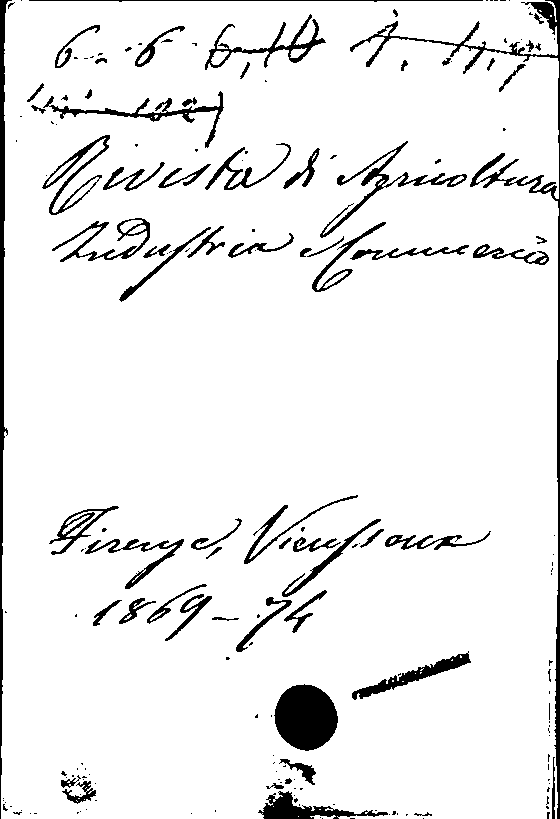 6. 6
Rivista di Agricoltura
Industria e Commercio
Firenze, Vieusseux
1869-74